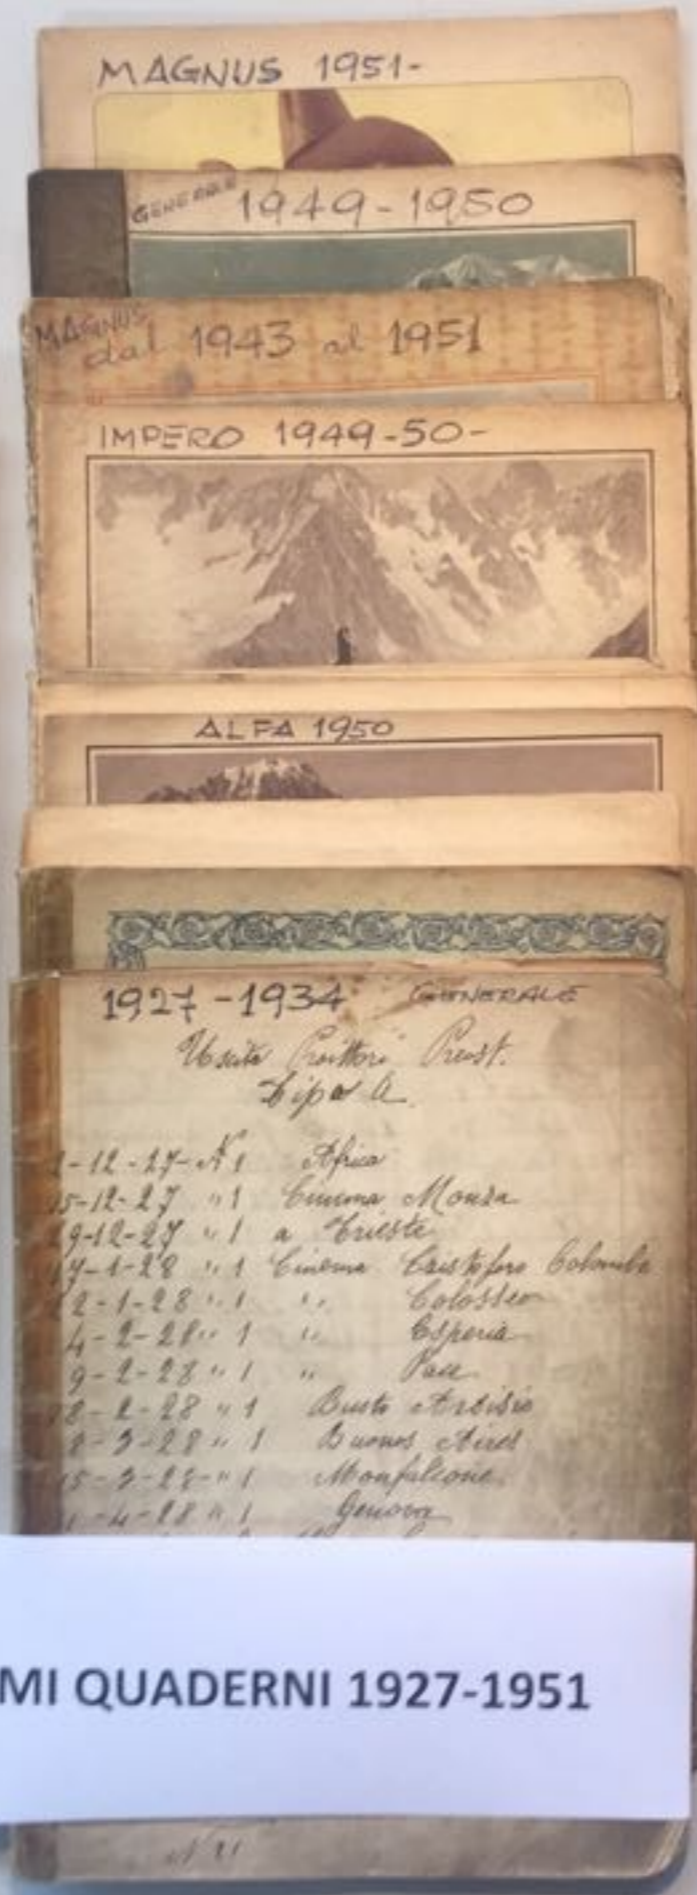 MAGNUS 1951-
GENERALE 1949-1950
MAGNUS
dal 1943 al 1951
IMPERO 1949-50-
ALFA 1950
1927-1934 GENERALE
Uscite Proittori Prevost.
Tipo A.
2-12-27- N 1 Africa
15-12-27 " 1 Cinema Monza
29-12-27 " 1 a Trieste
17-1-28 " 1 Cinema Cristoforo Colombo
22-1-28 " 1 " Colosseo
4-2-28 " 1 " Esperia
9-2-28 " 1 " Pace
18-2-28 " 1 Busto Arsisio
8-3-28 " 1 Buenos Aires
15-3-28-" 1 Monfalcone
1-4-28 " 1 Genova
MI QUADERNI 1927-1951